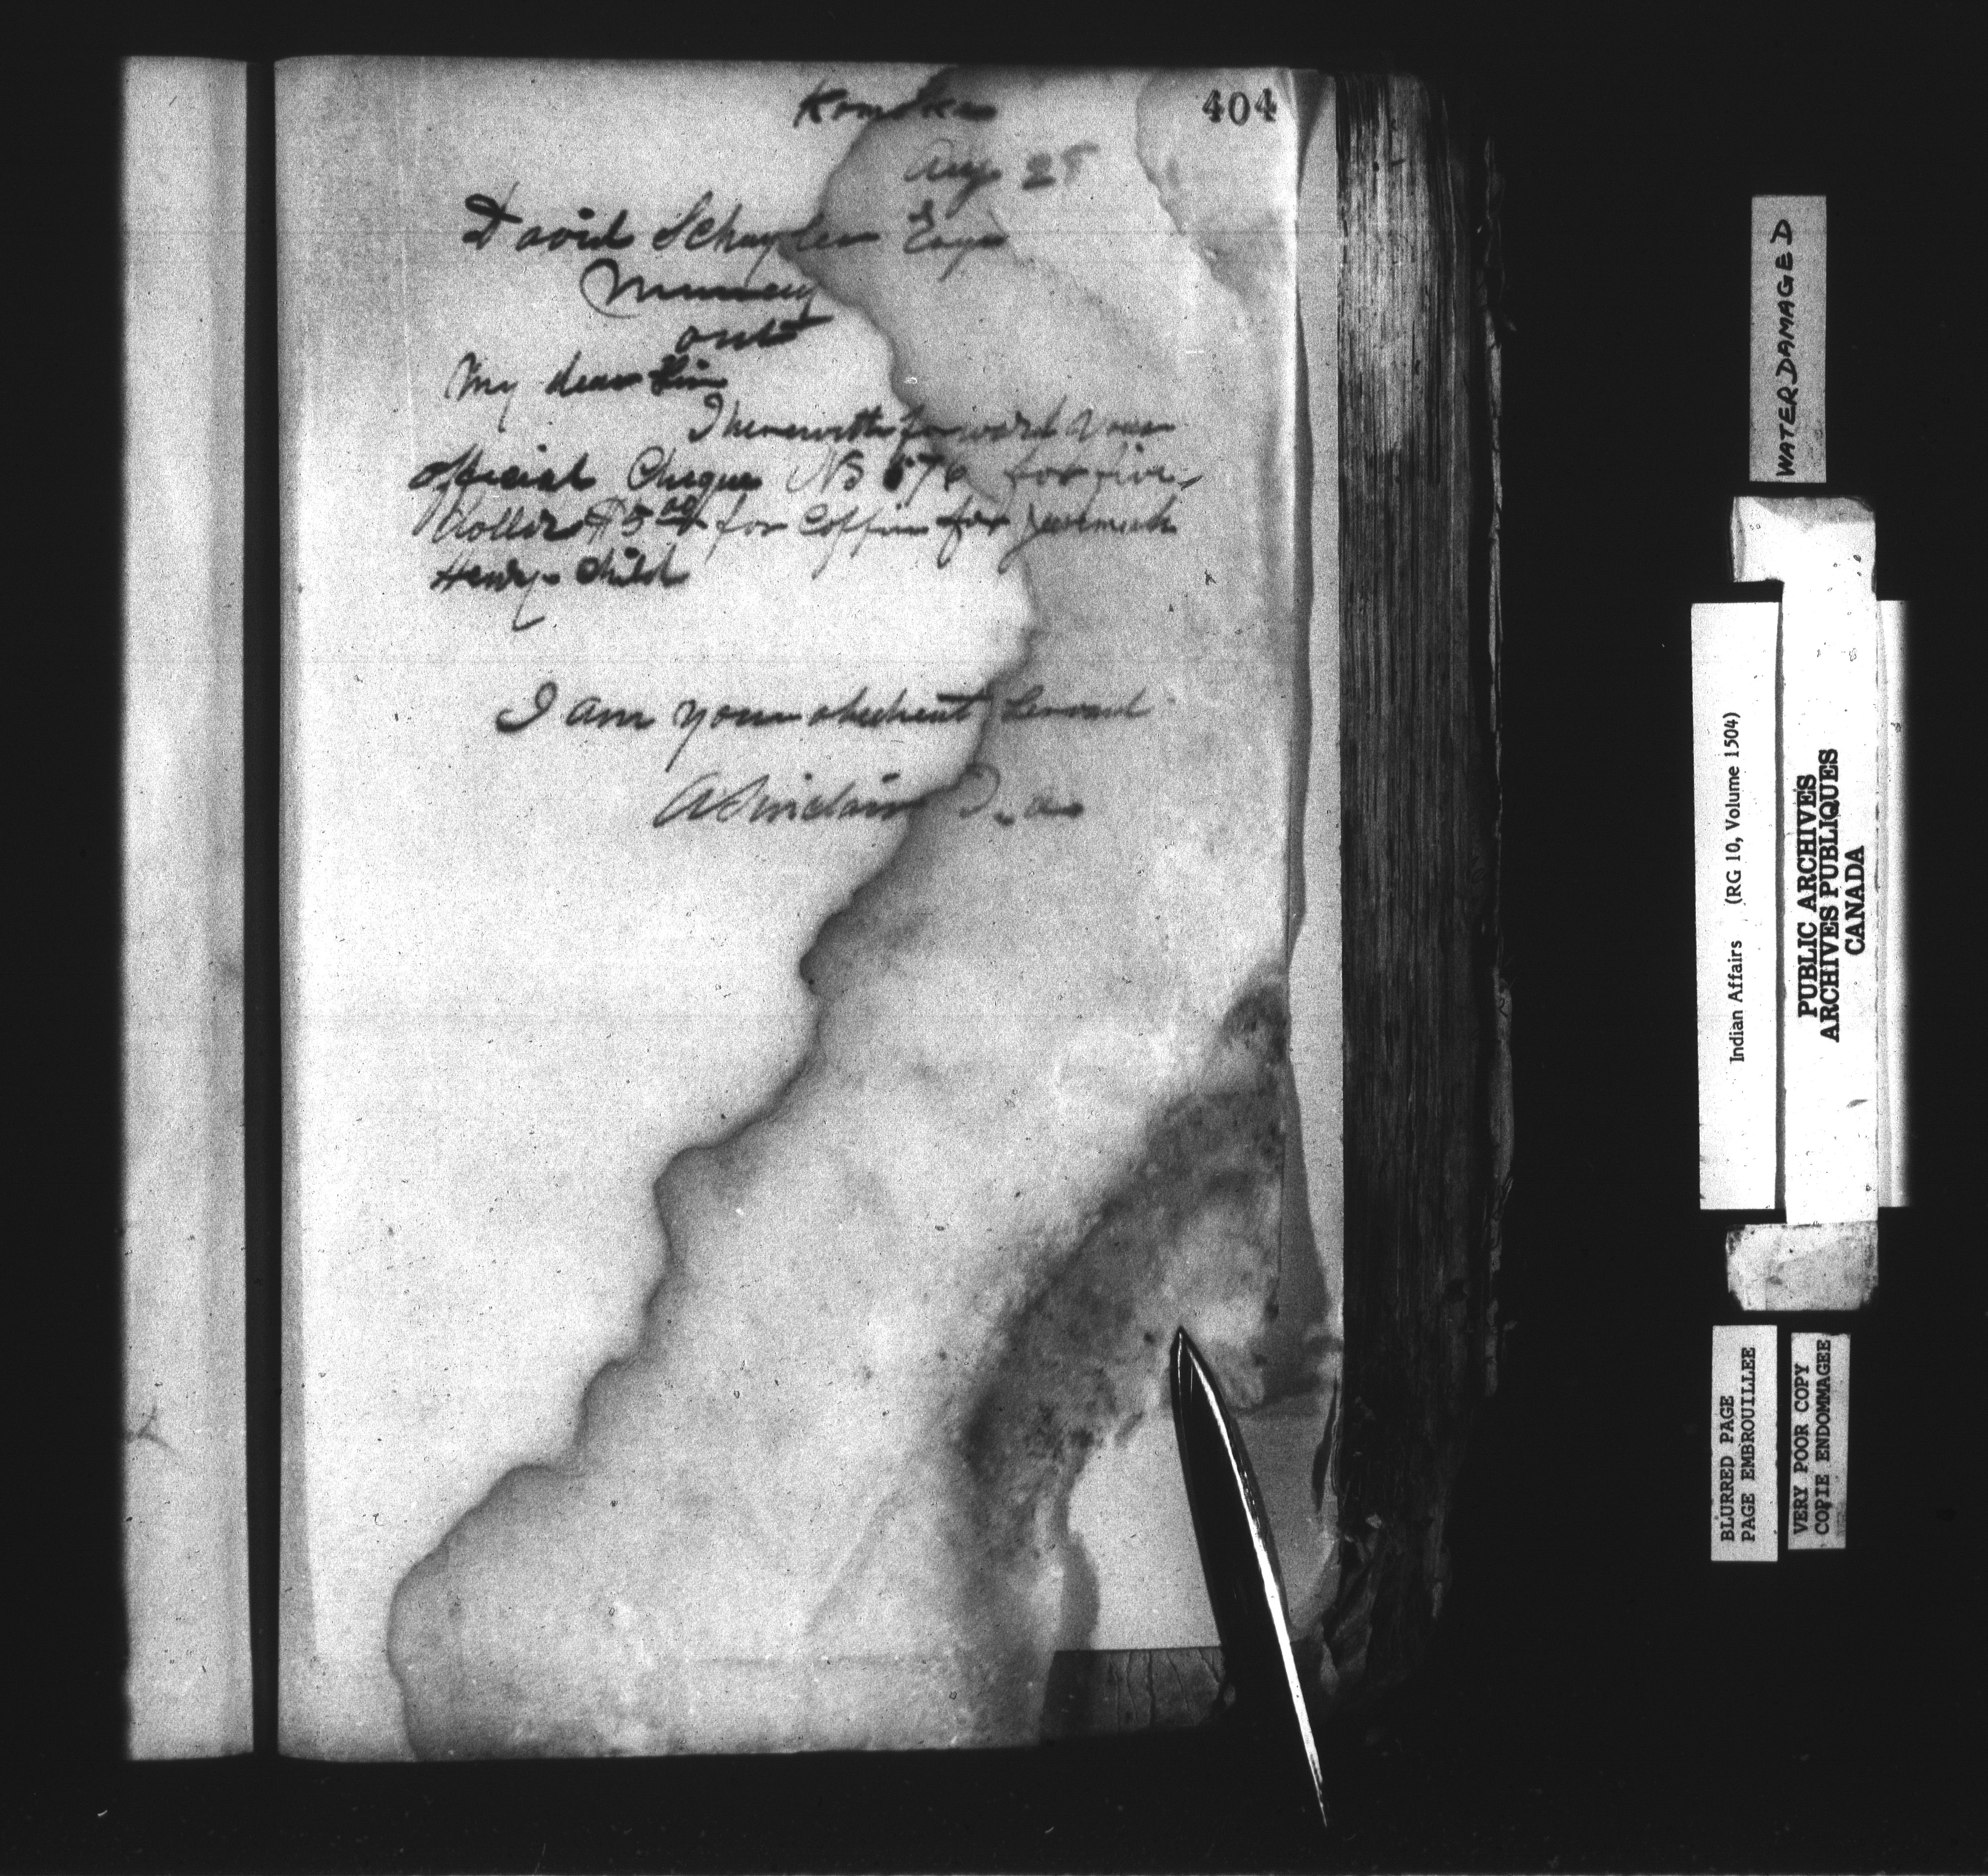 404
Komoka
Aug 25
David Schuyler Esqr
Muncey
ont
My dear Sir
I herewith forward your
official Cheque No 676 for five
Dollers $5 00 for Coffin for Jeremiah
Henry - Child
I am your obedient Servant
A Sinclair
WATERDAMAGED
Indian Affairs (RG 10, Volume 1504)
PUBLIC ARCHIVES
ARCHIVES PUBLIQUES
CANADA
BLURRED PAGE
PAGE EMBROUILLEE
VERY POOR COPY
COPIE ENDOMMAGEE